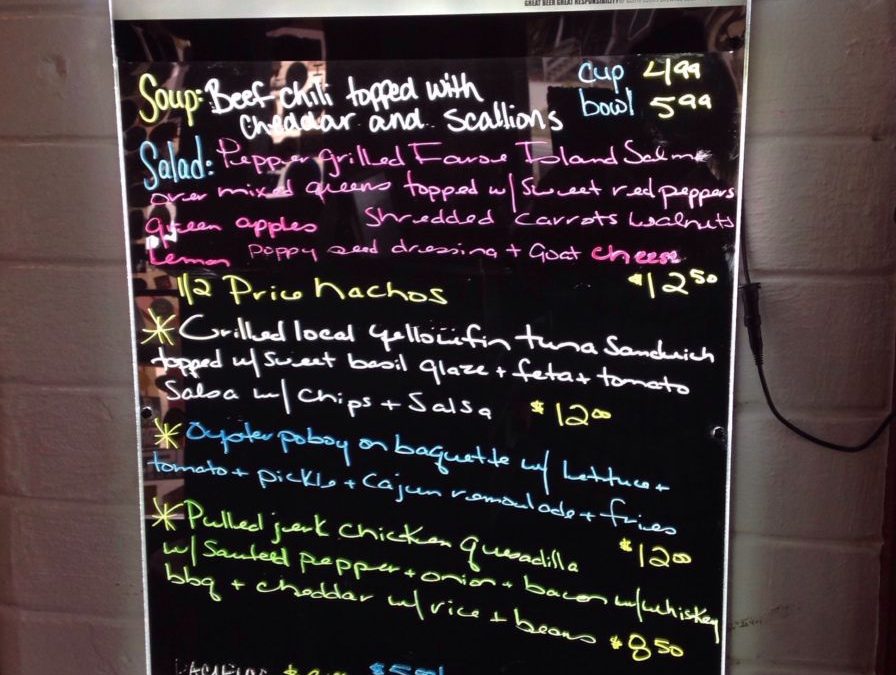 GREAT BEER GREAT RESPONSIBILITY
Soup: Beef chili topped with cup 4.99
cheddar and scallions bowl 5.99
Salad: Pepper grilled Faroe Island Salmon
over mixed greens topped w/ Sweet red peppers
green apples Shredded Carrots walnuts
Lemon poppy seed dressing + Goat cheese
1/2 Price nachos $12.50
* Grilled local yellowfin tuna Sandwich
topped w/ Sweet basil glaze + feta + tomato
Salsa w/ chips + Salsa $12.00
* Oyster poboy on baguette w/ Lettuce +
tomato + pickle + Cajun remoulade + fries
$12.00
* Pulled jerk chicken quesadilla
w/ Sauteed pepper + onion + bacon w/ whiskey
bbq + cheddar w/ rice + beans $8.50